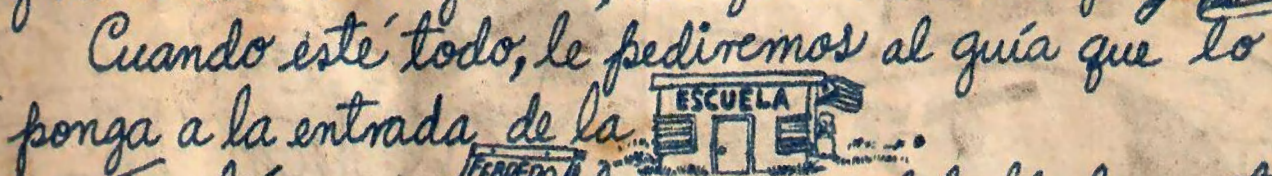 Cuando esté todo, le pediremos al guía que lo
ponga a la entrada de la ESCUELA.